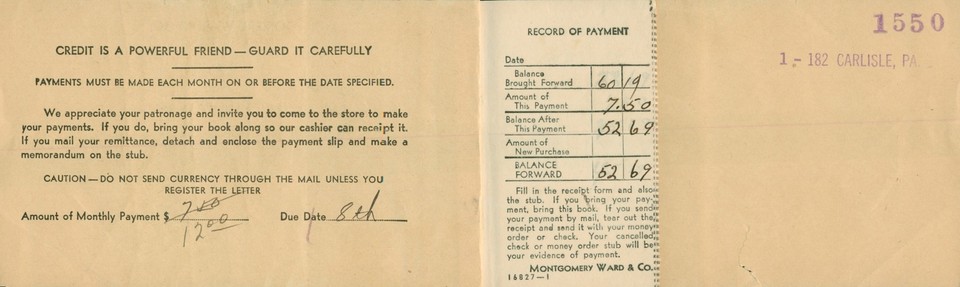 CREDIT IS A POWERFUL FRIEND — GUARD IT CAREFULLY
PAYMENTS MUST BE MADE EACH MONTH ON OR BEFORE THE DATE SPECIFIED.
We appreciate your patronage and invite you to come to the store to make
your payments. If you do, bring your book along so our cashier can receipt it.
If you mail your remittance, detach and enclose the payment slip and make a
memorandum on the stub.
CAUTION — DO NOT SEND CURRENCY THROUGH THE MAIL UNLESS YOU
REGISTER THE LETTER
Amount of Monthly Payment $ 7 50 Due Date 8th
12 00
RECORD OF PAYMENT
Date
Balance
Brought Forward 60 19
Amount of
This Payment 7.50
Balance After
This Payment 52 69
Amount of
New Purchase
BALANCE
FORWARD 52 69
Fill in the receipt form and also
the stub. If you bring your pay-
ment, bring this book. If you send
your payment by mail, tear out the
receipt and send it with your money
order or check. Your cancelled
check or money order stub will be
your evidence of payment.
MONTGOMERY WARD & CO.
16827—1
1550
1 - 182 CARLISLE, PA.